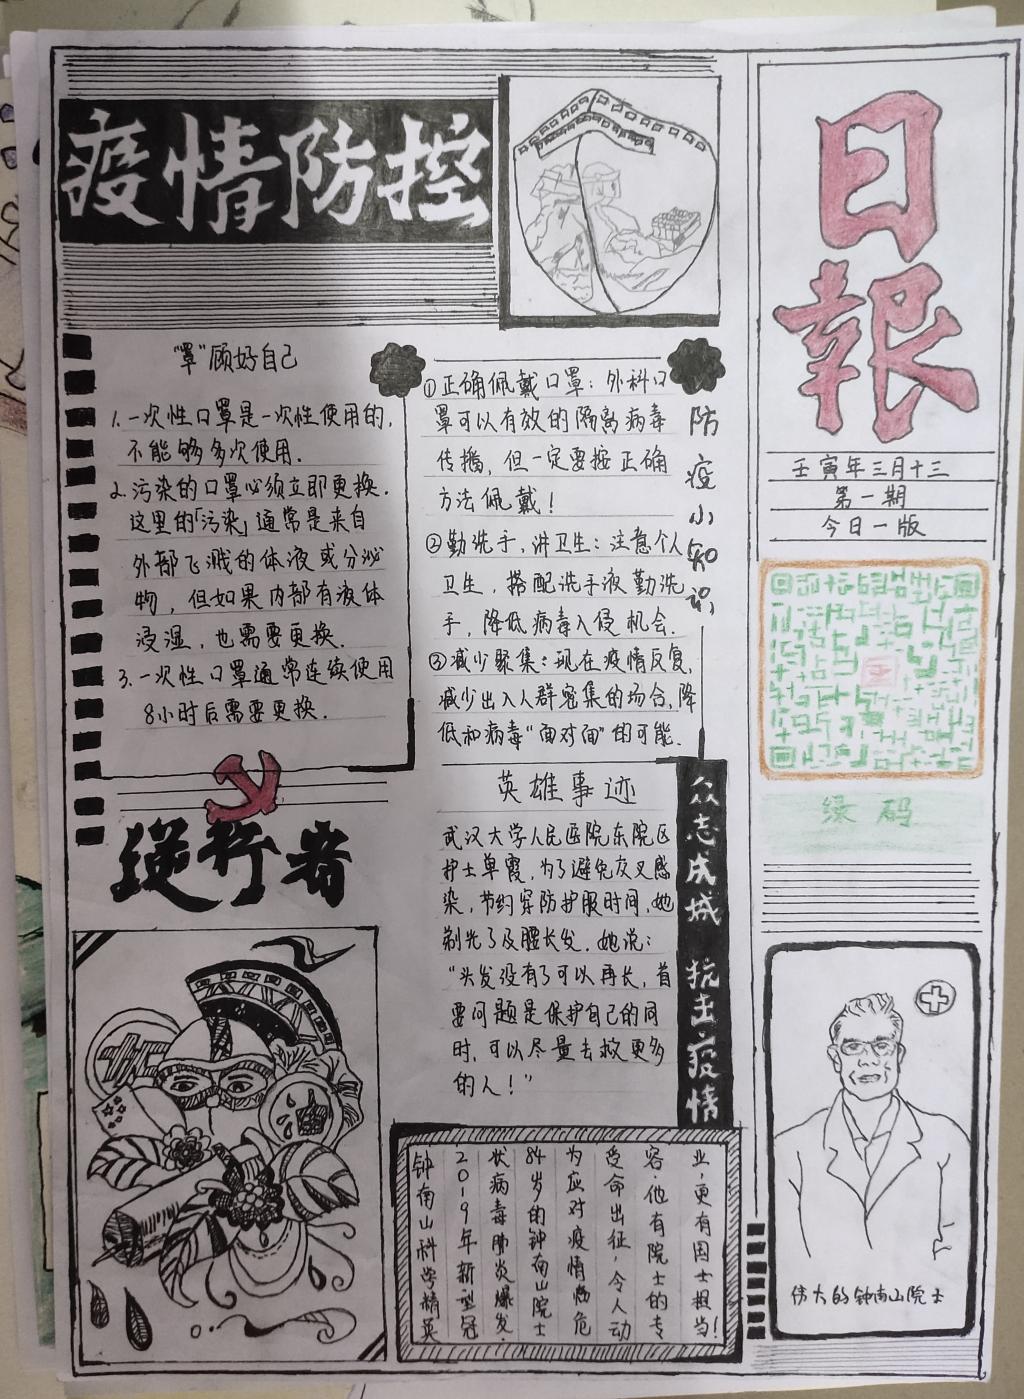 疫情防控
日報
壬寅年三月十三
第一期
今日一版
“罩”顾好自己
1.一次性口罩是一次性使用的,
不能够多次使用.
2.污染的口罩必须立即更换.
这里的「污染」通常是来自
外部飞溅的体液或分泌
物,但如果内部有液体
浸湿,也需要更换.
3.一次性口罩通常连续使用
8小时后需要更换.
防疫小知识
①正确佩戴口罩:外科口
罩可以有效的隔离病毒
传播,但一定要按正确
方法佩戴!
②勤洗手,讲卫生:注意个人
卫生,搭配洗手液勤洗
手,降低病毒入侵机会.
③减少聚集:现在疫情反复,
减少出入人群密集的场合,降
低和病毒“面对面”的可能.
绿码
逆行者
英雄事迹
武汉大学人民医院东院区
护士单霞,为了避免交叉感
染,节约穿防护服时间,她
剃光了及腰长发.她说:
“头发没有了可以再长,首
要问题是保护自己的同
时,可以尽量去救更多
的人!”
众志成城 抗击疫情
钟南山科学精英
2019年新型冠
状病毒肺炎爆发.
84岁的钟南山院士
为应对疫情临危
受命出征,令人动
容.他有院士的专
业,更有国士担当!
伟大的钟南山院士